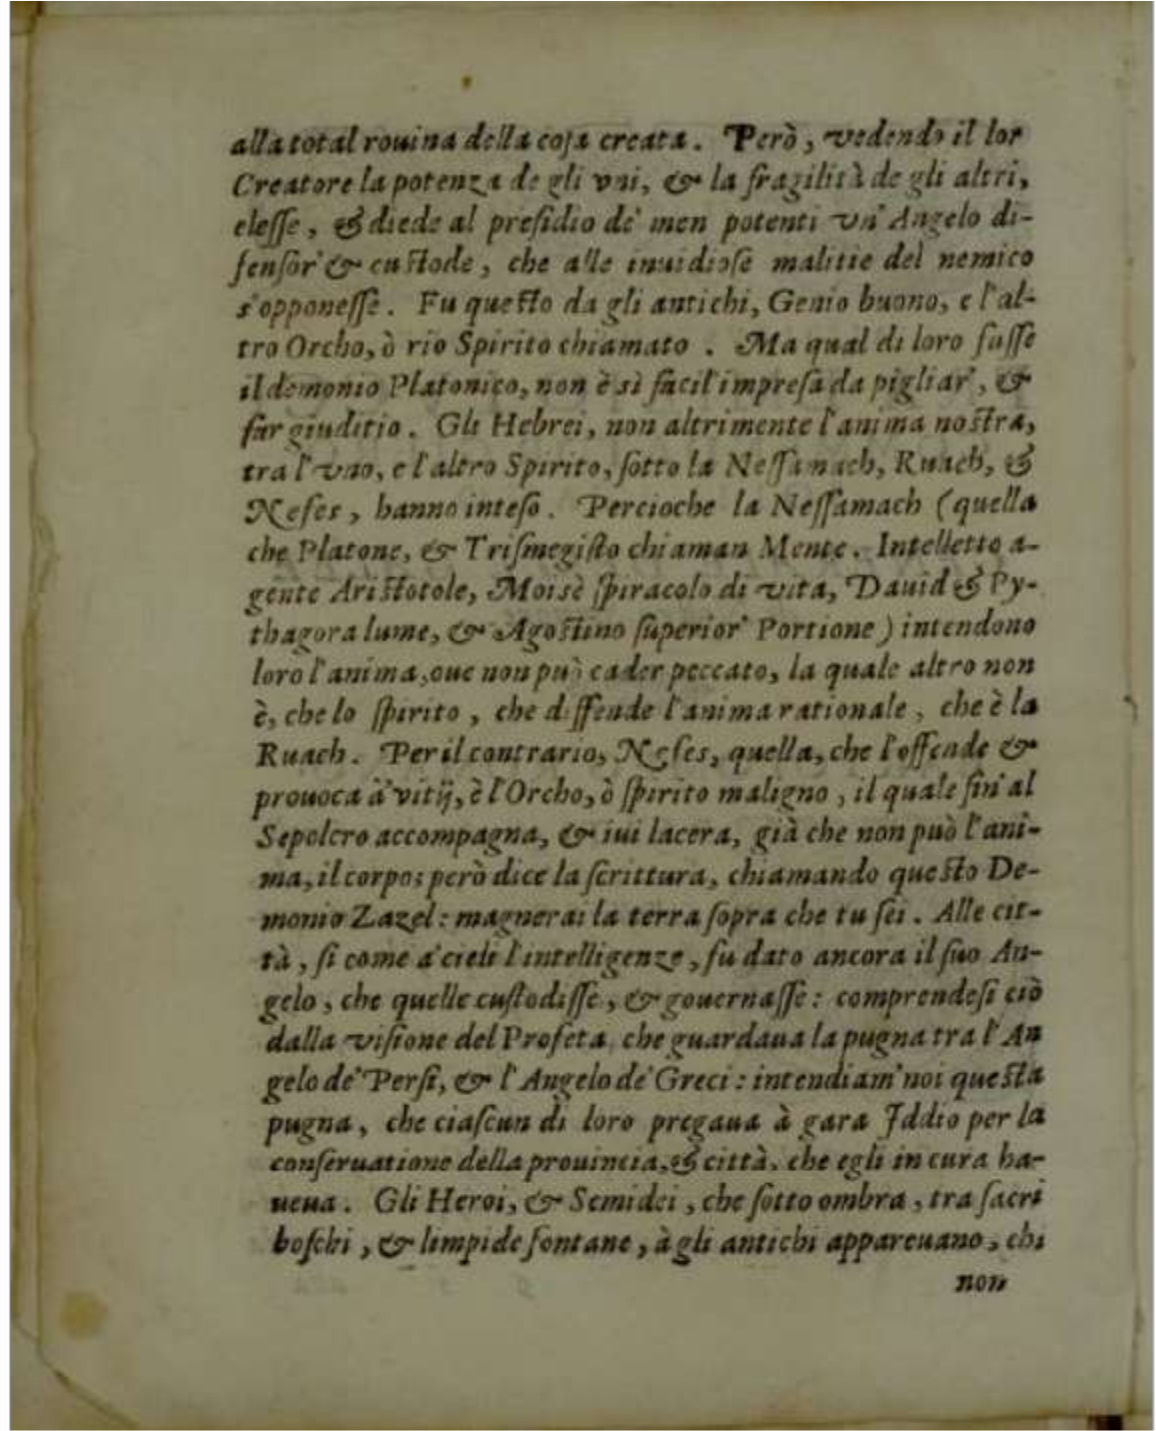 alla total rouina della coſa creata. Però, vedendo il lor
Creatore la potenza de gli vni, & la fragilità de gli altri,
eleſſe, & diede al preſidio de' men potenti vn' Angelo di-
fenſor' & cuſtode, che alle inuidioſe malitie del nemico
s'opponeſſe. Fu queſto da gli antichi, Genio buono, e l'al-
tro Orcho, ò rio Spirito chiamato. Ma qual di loro fuſſe
il demonio Platonico, non è sì facil' impreſa da pigliar', &
far giuditio. Gli Hebrei, non altrimente l'anima noſtra,
tra l'vno, e l'altro Spirito, ſotto la Neſſamach, Ruach, &
Nefes, hanno inteſo. Percioche la Neſſamach (quella
che Platone, & Triſmegiſto chiaman Mente. Intelletto a-
gente Ariſtotole, Moisè ſpiracolo di vita, Dauid & Py-
thagora lume, & Agoſtino ſuperior' Portione) intendono
loro l'anima, oue non può cader peccato, la quale altro non
è, che lo ſpirito, che diffende l'anima rationale, che è la
Ruach. Per il contrario, Nefes, quella, che l'offende &
prouoca à vitij, è l'Orcho, ò ſpirito maligno, il quale fin' al
Sepolcro accompagna, & iui lacera, già che non può l'ani-
ma, il corpo; però dice la ſcrittura, chiamando queſto De-
monio Zazel: magnerai la terra ſopra che tu ſei. Alle cit-
tà, ſi come a' cieli l'intelligenze, fu dato ancora il ſuo An-
gelo, che quelle cuſtodiſſe, & gouernaſſe: comprendeſi ciò
dalla viſione del Profeta che guardaua la pugna tra l'An
gelo de' Perſi, & l'Angelo de' Greci: intendiam' noi queſta
pugna, che ciaſcun di loro pregaua à gara Iddio per la
conſeruatione della prouincia, & città, che egli in cura ha-
ueua. Gli Heroi, & Semidei, che ſotto ombra, tra ſacri
boſchi, & limpide fontane, à gli antichi appareuano, chi
non